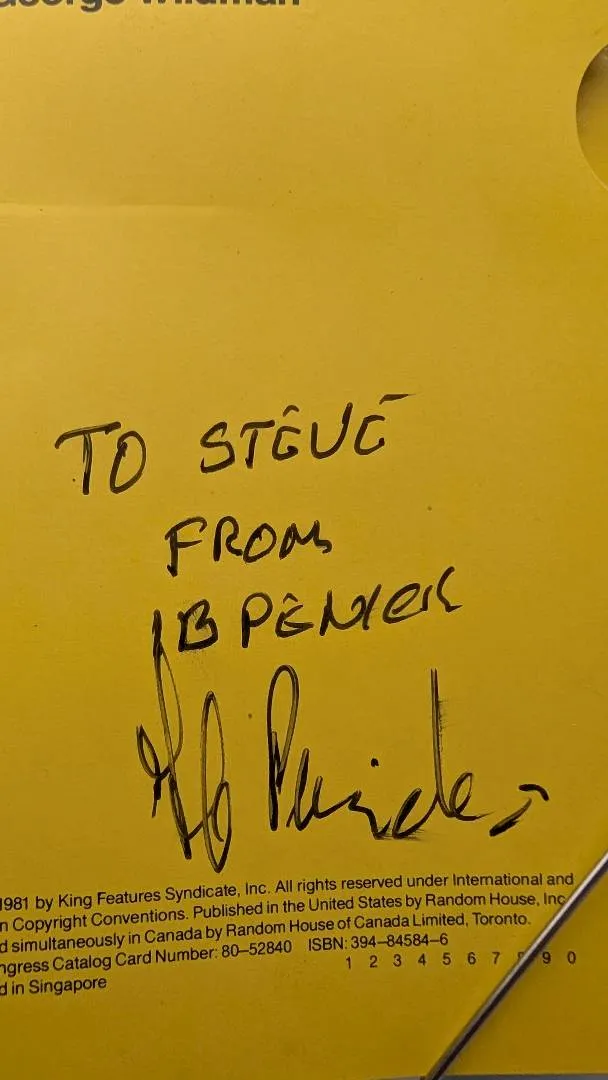 George Wildman
TO STEVE
FROM
IB PENICK
1981 by King Features Syndicate, Inc. All rights reserved under International and
n Copyright Conventions. Published in the United States by Random House, Inc
d simultaneously in Canada by Random House of Canada Limited, Toronto.
ngress Catalog Card Number: 80–52840 ISBN: 394–84584–6
1 2 3 4 5 6 7 9 0
d in Singapore